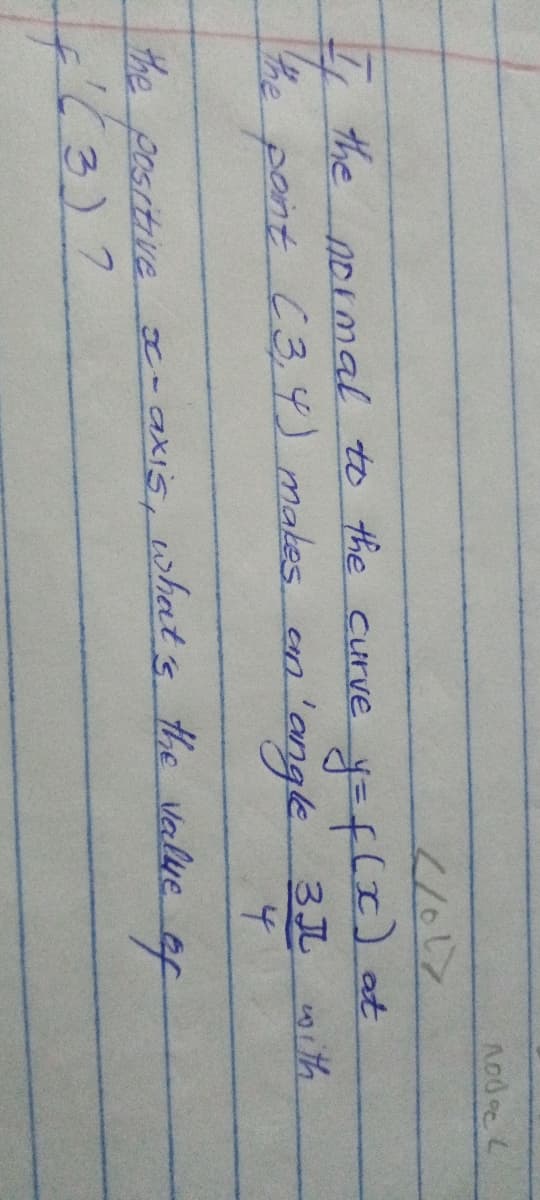 </ol>
If the normal to the curve y=f(x) at
the point (3,4) makes an angle 3π/4 with
the positive x-axis, what's the value of
f'(3)?